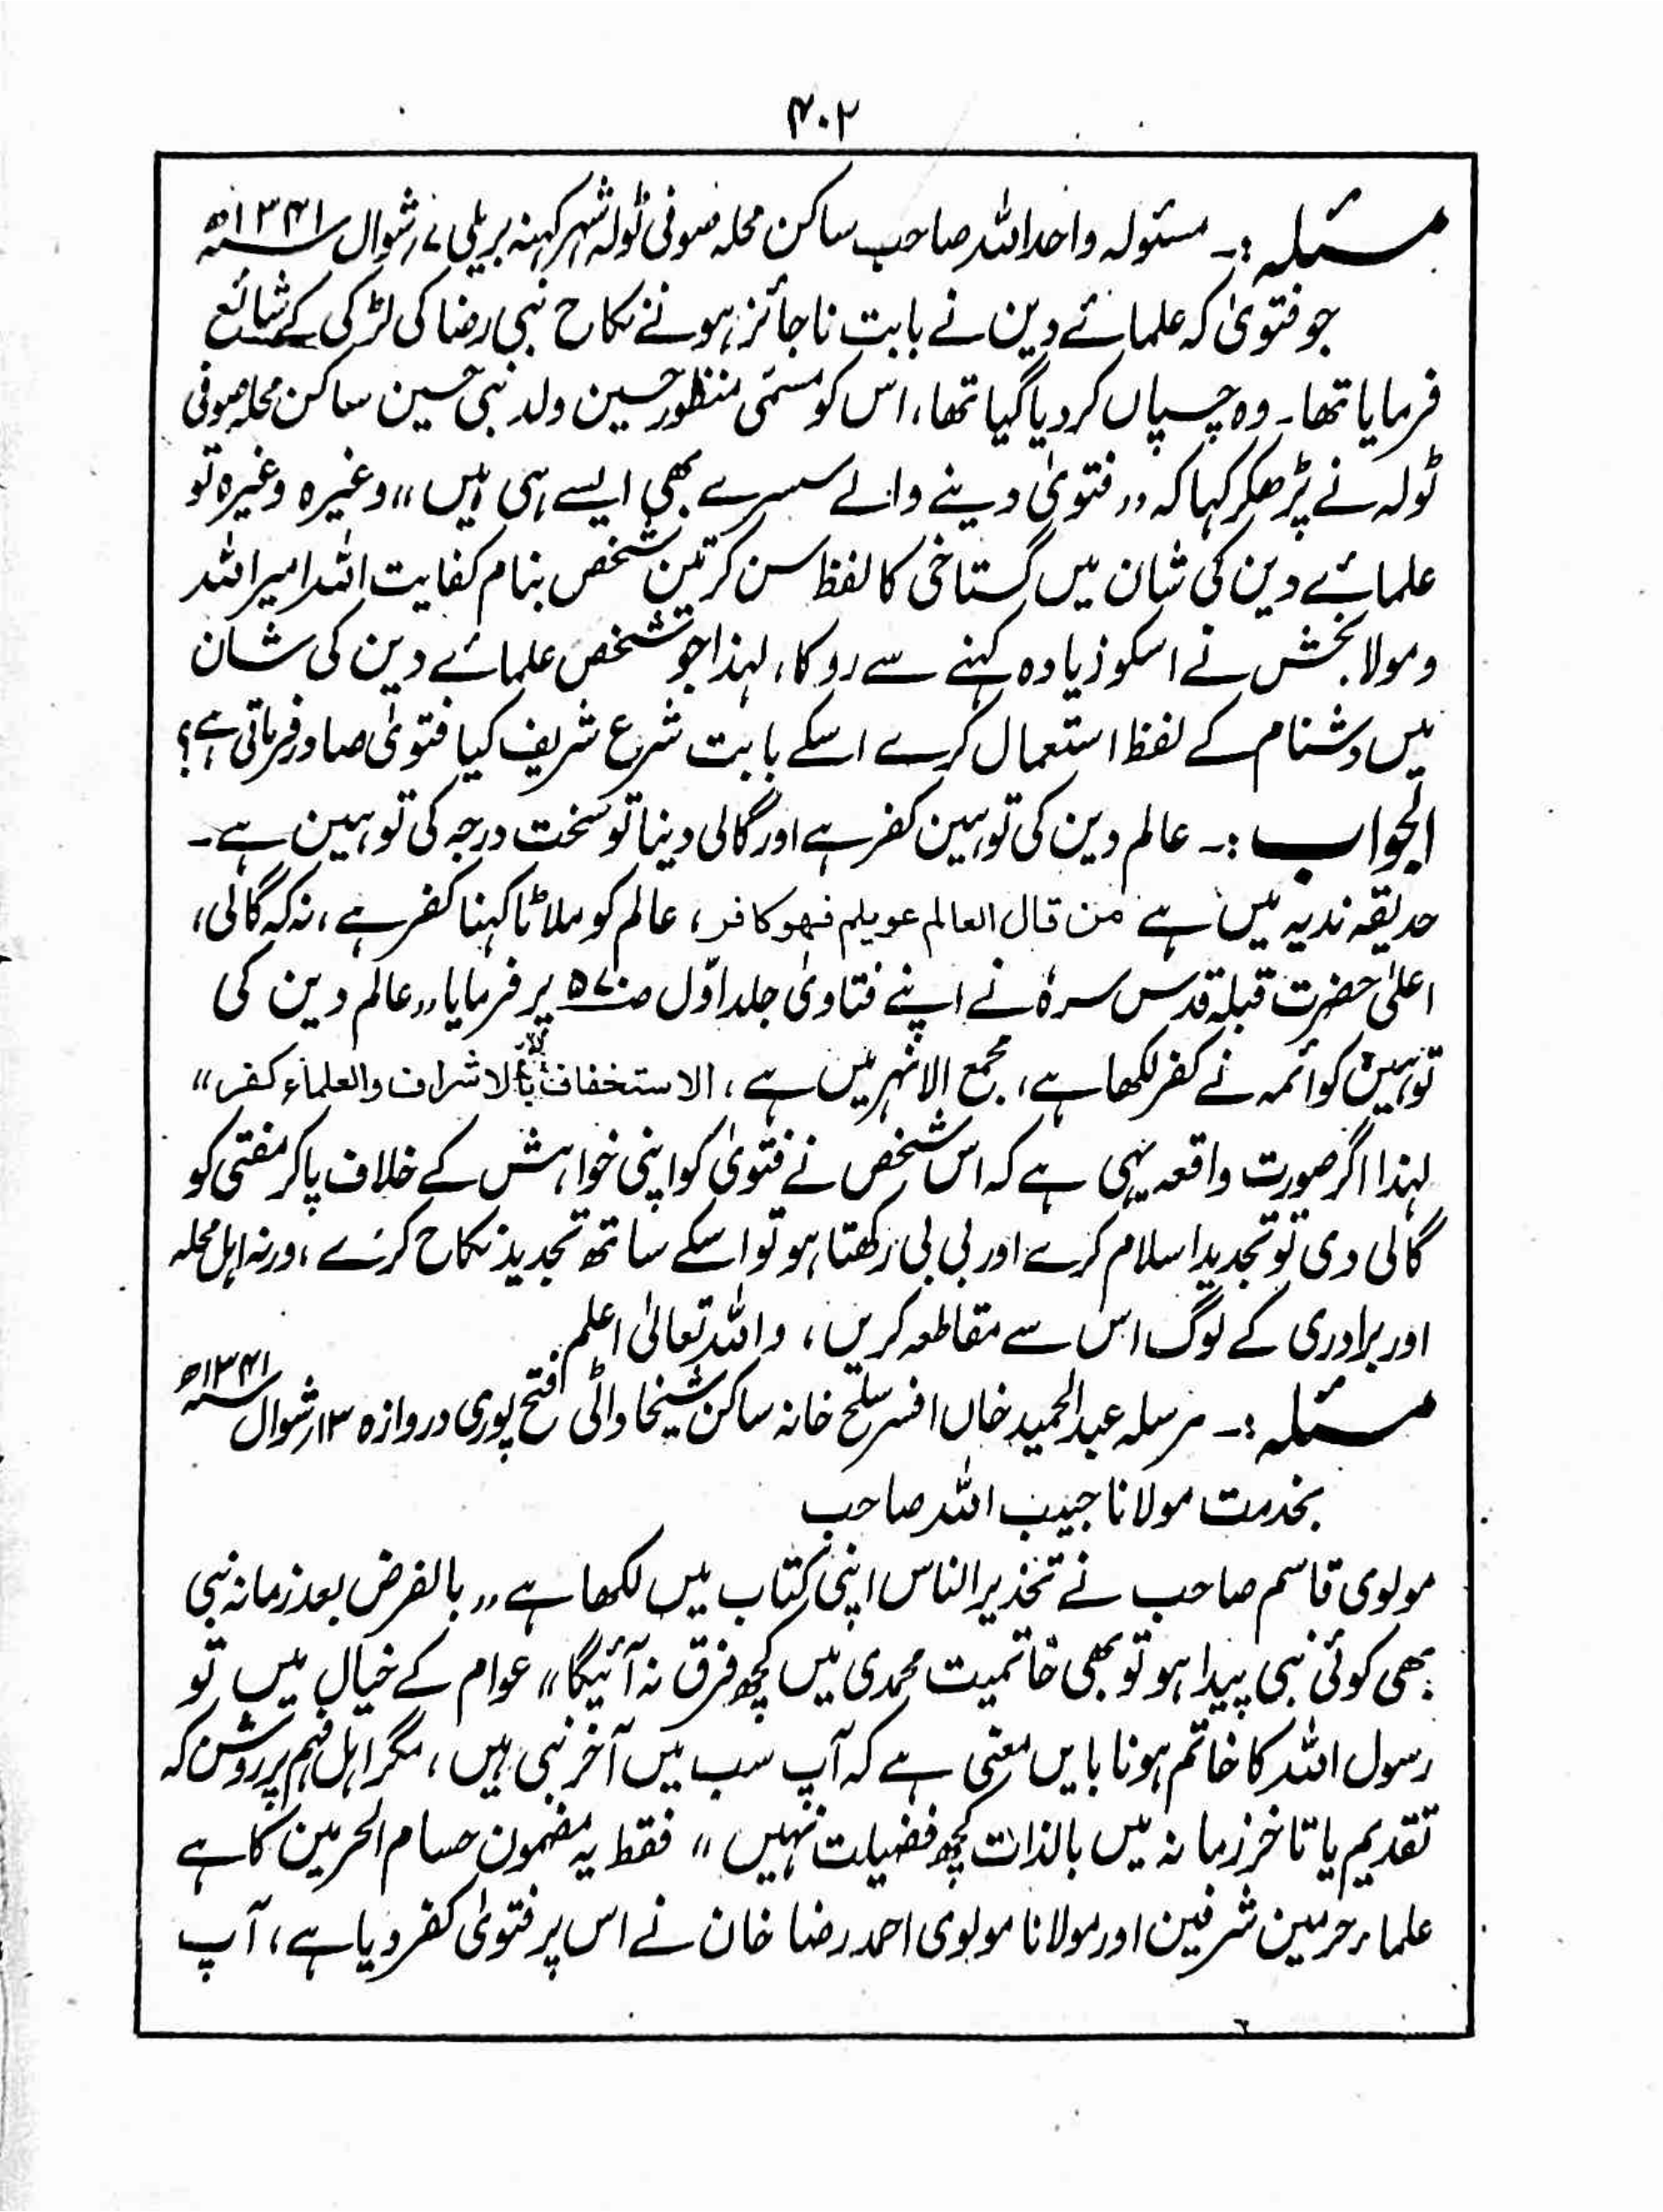 ۴۰۲
مسئلہ :۔ مسئولہ واحد اللہ صاحب ساکن محلہ صوفی ٹولہ شہر کہنہ بریلی ۷ر شوال ۱۳۴۱ھ
جو فتویٰ کہ علمائے دین نے بابت ناجائز ہونے نکاح نبی رضا کی لڑکی کے شائع
فرمایا تھا۔ وہ چسپاں کر دیا گیا تھا، اس کو مسمّی منظور حسین ولد نبی حسین ساکن محلہ صوفی
ٹولہ نے پڑھکر کہا کہ ,, فتویٰ دینے والے سسرے بھی ایسے ہی ہیں ،، وغیرہ وغیرہ تو
علمائے دین کی شان میں گستاخی کا لفظ سن کر تین شخص بنام کفایت اللہ امیر اللہ
و مولا بخش نے اسکو زیادہ کہنے سے روکا، لہذا جو شخص علمائے دین کی شان
میں دشنام کے لفظ استعمال کرے اسکے بابت شرع شریف کیا فتویٰ صادر فرماتی ہے؟
الجواب :۔ عالم دین کی توہین کفر ہے اور گالی دینا تو سخت درجہ کی توہین ہے۔
حدیقہ ندیہ میں ہے من قال العالم عویلم فہو کافر، عالم کو ملاٹا کہنا کفر ہے، نہ کہ گالی،
اعلیٰ حضرت قبلہ قدس سرہٗ نے اپنے فتاویٰ جلد اوّل ص۵۷۰ پر فرمایا ,, عالم دین کی
توہین کو ائمہ نے کفر لکھا ہے، مجمع الانہر میں ہے، الاستخفاف بالاشراف والعلماء کفر ،،
لہذا اگر صورت واقعہ یہی ہے کہ اس شخص نے فتویٰ کو اپنی خواہش کے خلاف پا کر مفتی کو
گالی دی تو تجدید اسلام کرے اور بی بی رکھتا ہو تو اسکے ساتھ تجدید نکاح کرے، ورنہ اہل محلہ
اور برادری کے لوگ اس سے مقاطعہ کریں، واللہ تعالیٰ اعلم
مسئلہ :۔ مرسلہ عبدالحمید خاں افسر سلح خانہ ساکن شیخاواٹی فتح پوری دروازہ ۱۳ر شوال ۱۳۴۱ھ
بخدمت مولانا حبیب اللہ صاحب
مولوی قاسم صاحب نے تحذیر الناس اپنی کتاب میں لکھا ہے ,, بالفرض بعد زمانہ نبی
بھی کوئی نبی پیدا ہو تو بھی خاتمیت محمدی میں کچھ فرق نہ آئیگا ،، عوام کے خیال میں تو
رسول اللہ کا خاتم ہونا بایں معنی ہے کہ آپ سب میں آخر نبی ہیں، مگر اہل فہم پر روشن کہ
تقدیم یا تاخر زمانہ میں بالذات کچھ فضیلت نہیں ،، فقط یہ مضمون حسام الحرمین کا ہے
علماء حرمین شرفین اور مولانا مولوی احمد رضا خان نے اس پر فتویٰ کفر دیا ہے، آپ